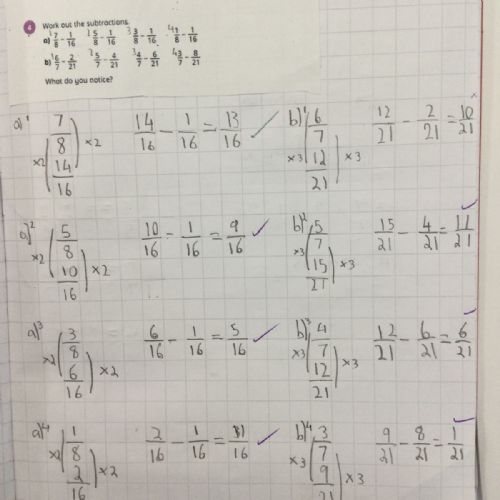 4 Work out the subtractions.
a) 1 7/8 − 1/16 2 5/8 − 1/16 3 3/8 − 1/16 4 1/8 − 1/16
b) 1 6/7 − 2/21 2 5/7 − 4/21 3 4/7 − 6/21 4 3/7 − 8/21
What do you notice?
a)1 ×2 ( 7/8 14/16 ) ×2 14/16 − 1/16 = 13/16 b)1 ×3 ( 6/7 12/21 ) ×3 12/21 − 2/21 = 10/21
a)2 ×2 ( 5/8 10/16 ) ×2 10/16 − 1/16 = 9/16 b)2 ×3 ( 5/7 15/21 ) ×3 15/21 − 4/21 = 11/21
a)3 ×2 ( 3/8 6/16 ) ×2 6/16 − 1/16 = 5/16 b)3 ×3 ( 4/7 12/21 ) ×3 12/21 − 6/21 = 6/21
a)4 ×2 ( 1/8 2/16 ) ×2 2/16 − 1/16 = 1/16 b)4 ×3 ( 3/7 9/21 ) ×3 9/21 − 8/21 = 1/21